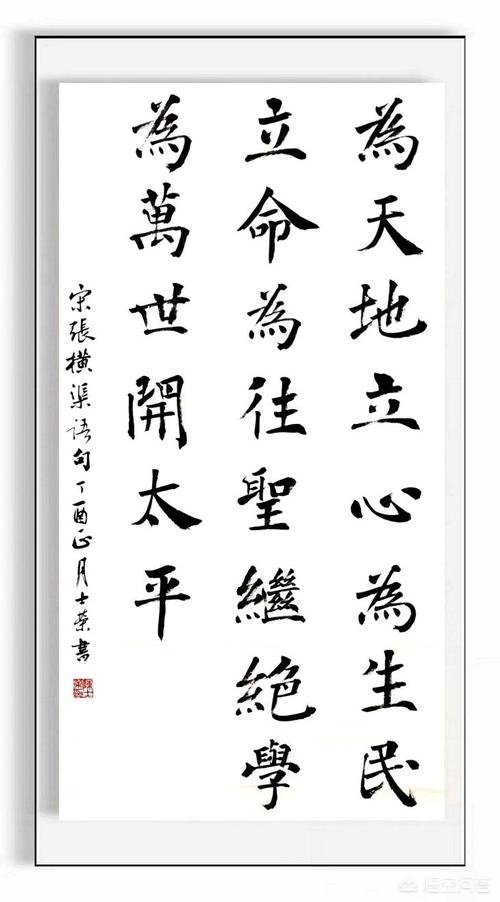 為天地立心為生民
立命為往聖繼絕學
為萬世開太平
宋張橫渠語句丁酉正月士榮書
悟空问答